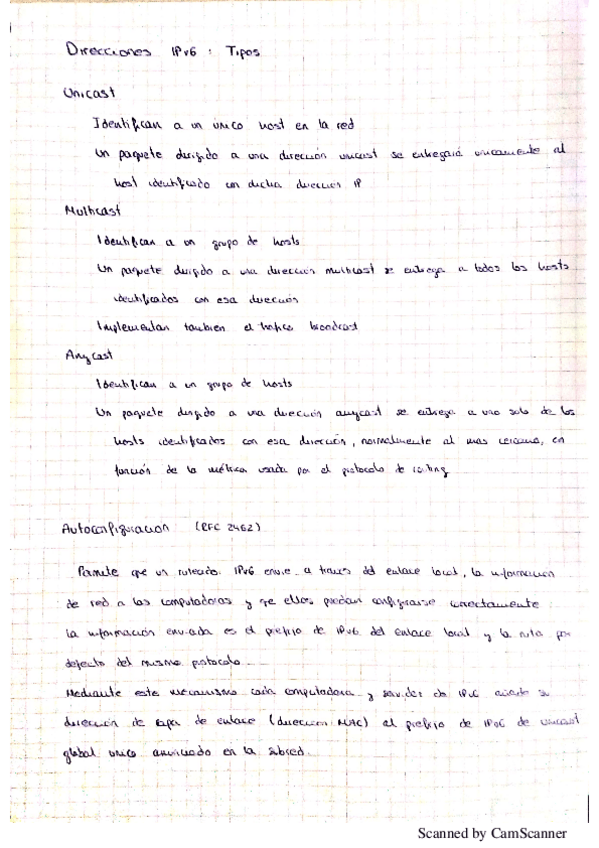 Direcciones IPv6 : Tipos
Unicast
Identifican a un único host en la red
Un paquete dirigido a una dirección unicast se entregará únicamente al
host identificado con dicha dirección IP
Multicast
Identifican a un grupo de hosts
Un paquete dirigido a una dirección multicast se entrega a todos los hosts
identificados con esa dirección
Implementan tambien el trafico broadcast
Anycast
Identifican a un grupo de hosts
Un paquete dirigido a una dirección anycast se entrega a uno solo de los
hosts identificados con esa dirección, normalmente al mas cercano, en
función de la métrica usada por el protocolo de routing
Autoconfiguracion (RFC 2462)
Permite que un ruteador IPv6 envie a traves del enlace local, la informacion
de red a las computadoras y que ellos puedan configurarse correctamente
la información enviada es el prefijo de IPv6 del enlace local y la ruta por
defecto del mismo protocolo
Mediante este mecanismo cada computadora y servidor de IPv6 añade su
dirección de capa de enlace (direccion MAC) al prefijo de IPv6 de unicast
global unico anunciado en la subred.
Scanned by CamScanner